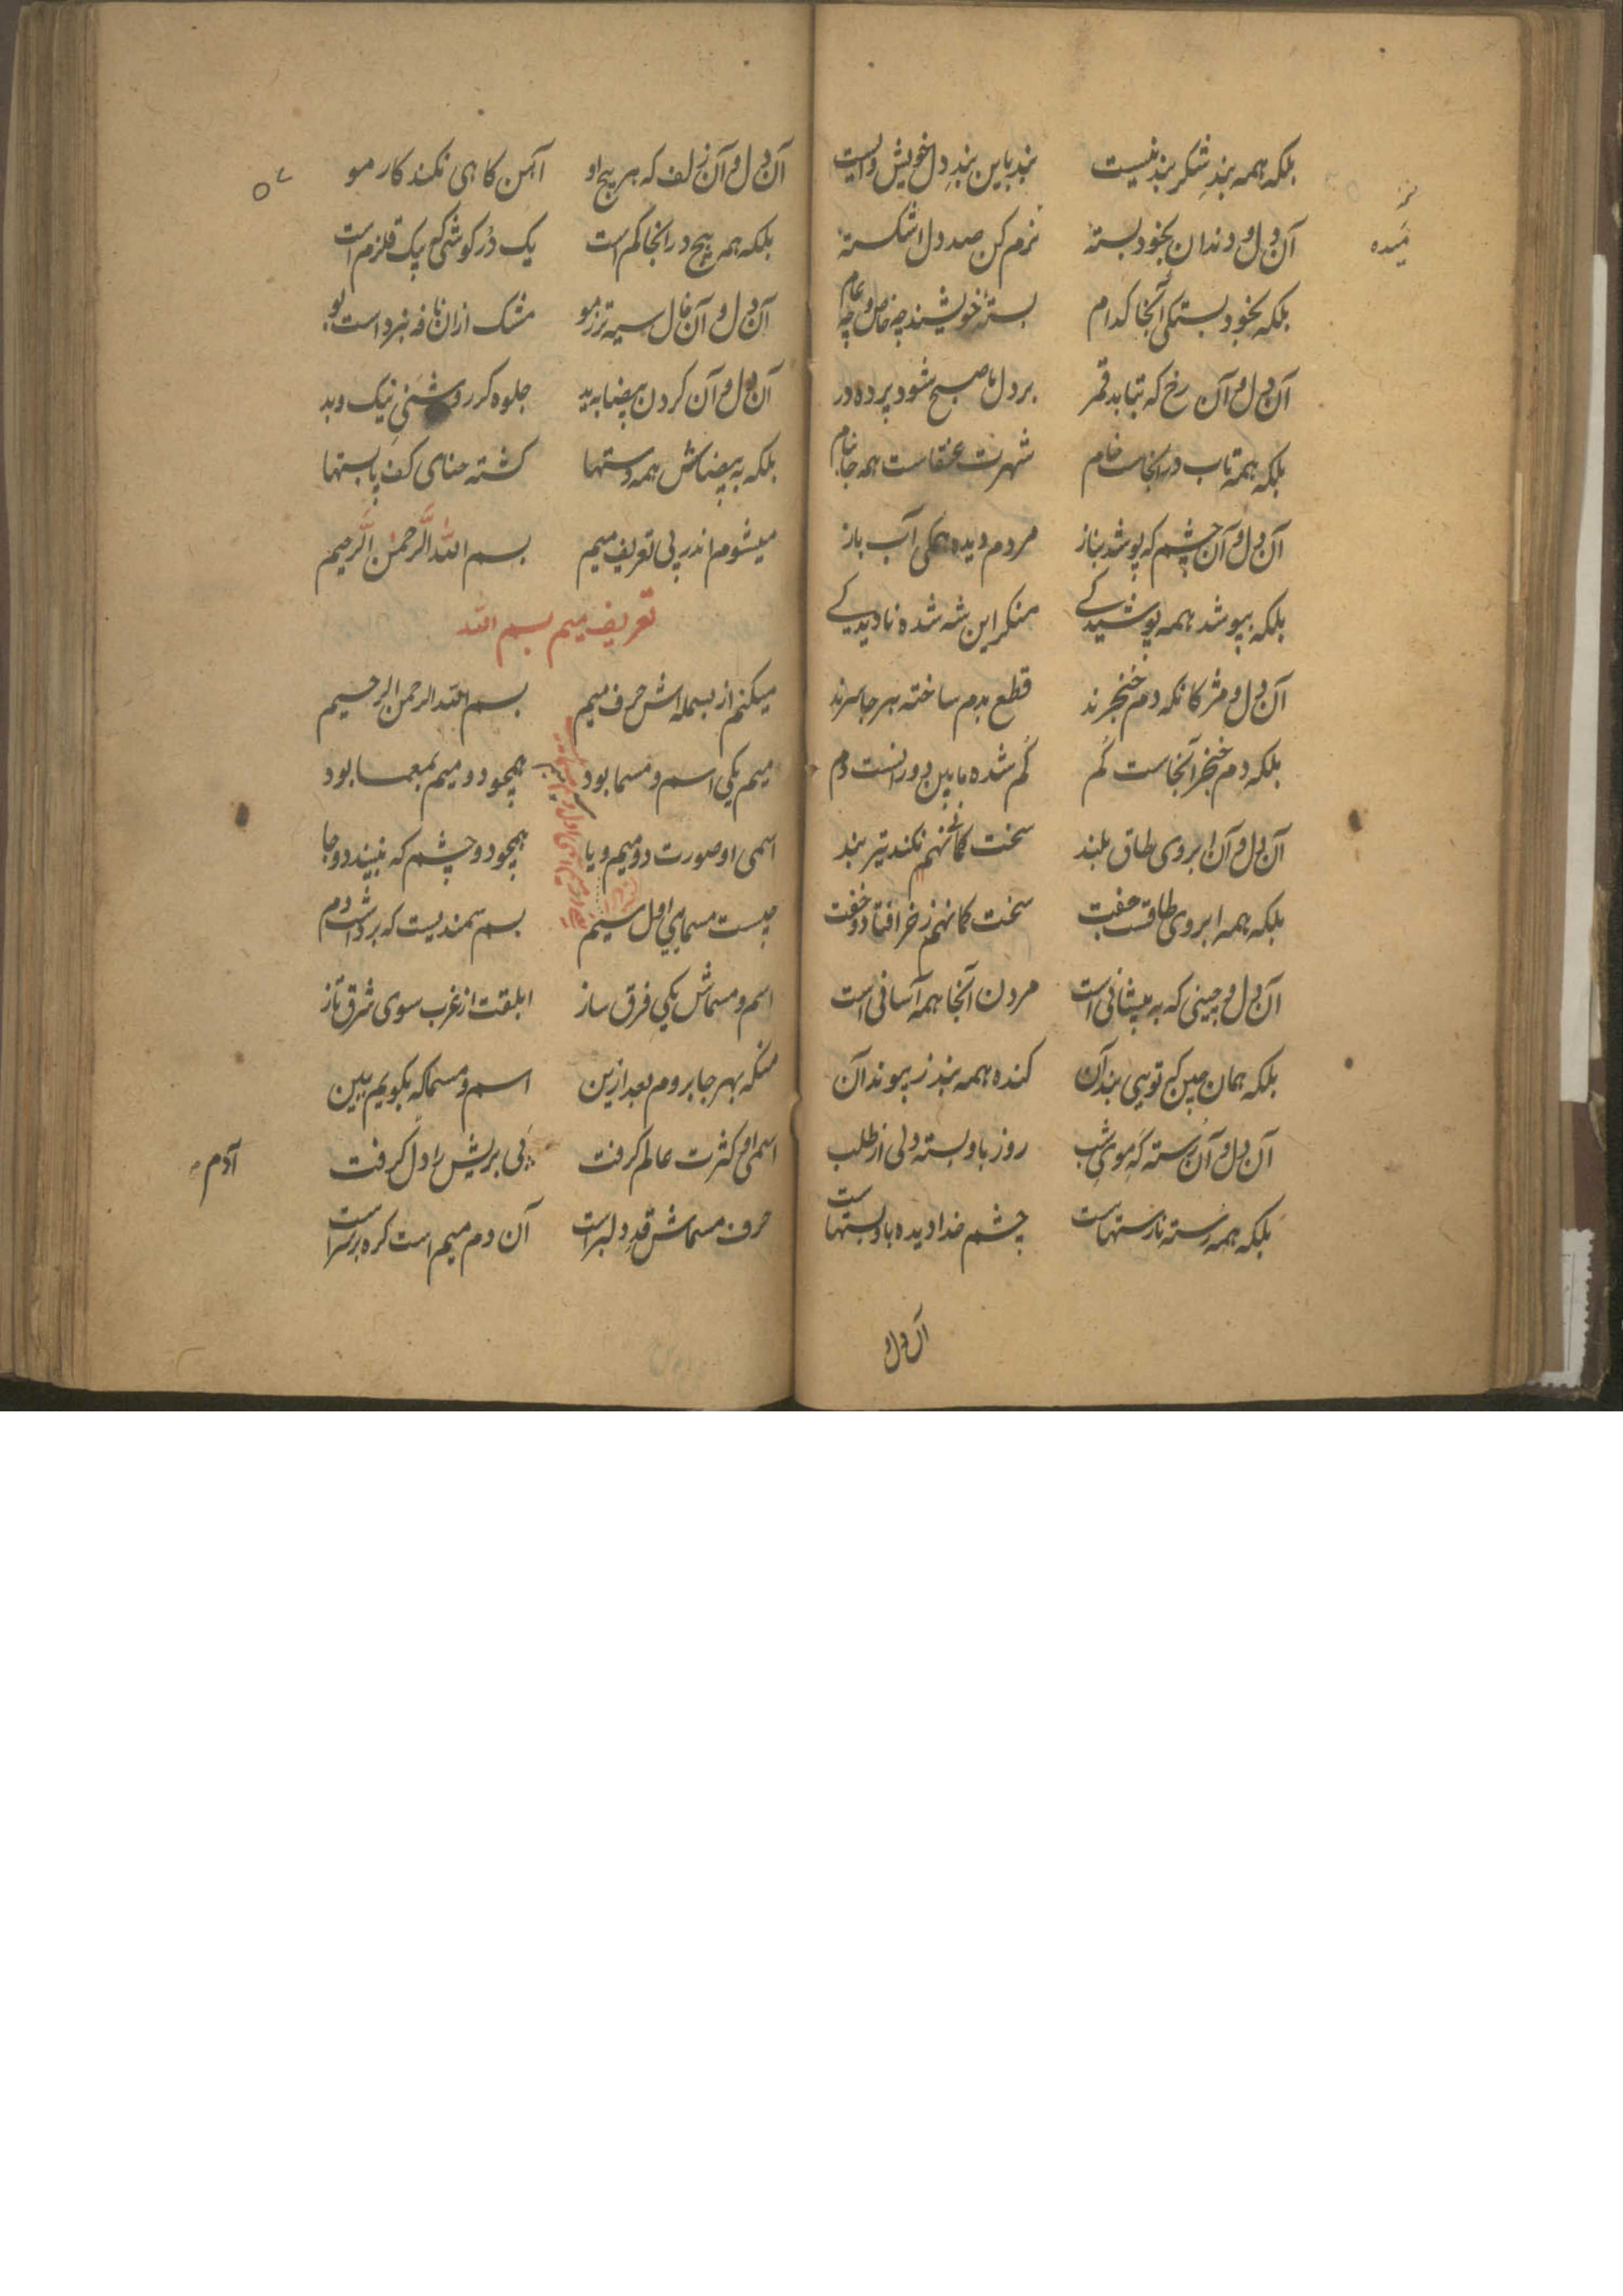 بلکه همه بندِ شکر بند نیست بند باین بندِ دل خویش وایست
آن دل و دندان بخود بسته نرم کن صد دل اشکسته
بلکه بخود بستگی آنجا کدام بستهٔ خویشند چه خاص و چه عام
آن دل و آن رخ که بتابد قمر بر دل ما صبح شود پرده در
بلکه همه تاب در آنجاست خام شهرت عنقاست همه جا بنام
آن دل و آن چشم که پوشد بناز مردم دیده همگی آب باز
بلکه بپوشد همه پوشیدگی منکر این شه شده نادیدگی
آن دل و مژگانکه دم خنجرند قطع بدم ساخته هر جا سرند
بلکه دم خنجر آنجاست گم گم شده مابین دو رانست دم
آن دل و آن ابروی طاق بلند سخت کمانهم نکند تیر بند
بلکه همه ابروی طاقست جفت سخت کمانهم ز خر افتاد و خفت
آن دل و جبینی که به پیشانی است مردن آنجا همه آسانی است
بلکه همان چین که تویی بند آن کنده همه بند ز پیوند آن
آن دل و آن رسته که موی شب روز باو بسته دلی از طلب
بلکه همه رسته نارستهاست چشم خدا دیده باو بستهاست
آن دل و
آن دل و آن زلف که هر پیچ او آهن کاهی نکند کار مو
بلکه همه پیچ در آنجا کم است یک دُر گوشی که بیک قلزم است
آن دل و آن خال سیه‌تر ز مو مشک از آن نافه نبرد است بو
آن دل و آن گردن بیضا به ید جلوه گر روشنیِ نیک و بد
بلکه به بیضاش همه دستها گشته حنای کف پا بستها
میشوم اندر پی تعریف میم بسم الله الرحمن الرحیم
تعریف میم بسم الله
میکنم از بسمله اش حرف میم بسم الله الرحمن الرحیم
میم یکی اسم و مسما بود همچو دو میم بمعما بود
اسمی او صورت دو میم و یا همچو دو چشم که ببیند دو جا
چیست مسمای اول سینم بسم سمندیست که برداشت دم
اسم و مسماش یکی فرق ساز ابلقت از غرب سوی شرق تاز
منکه بهر جا بروم بعد ازین اسم و مسما که بگویم ببین
اسمی او کثرت عالم گرفت نی بریش را دل گرفت
حرف مسماش قدِ دلبر است آن دم میم است گره بر سر است
آدم